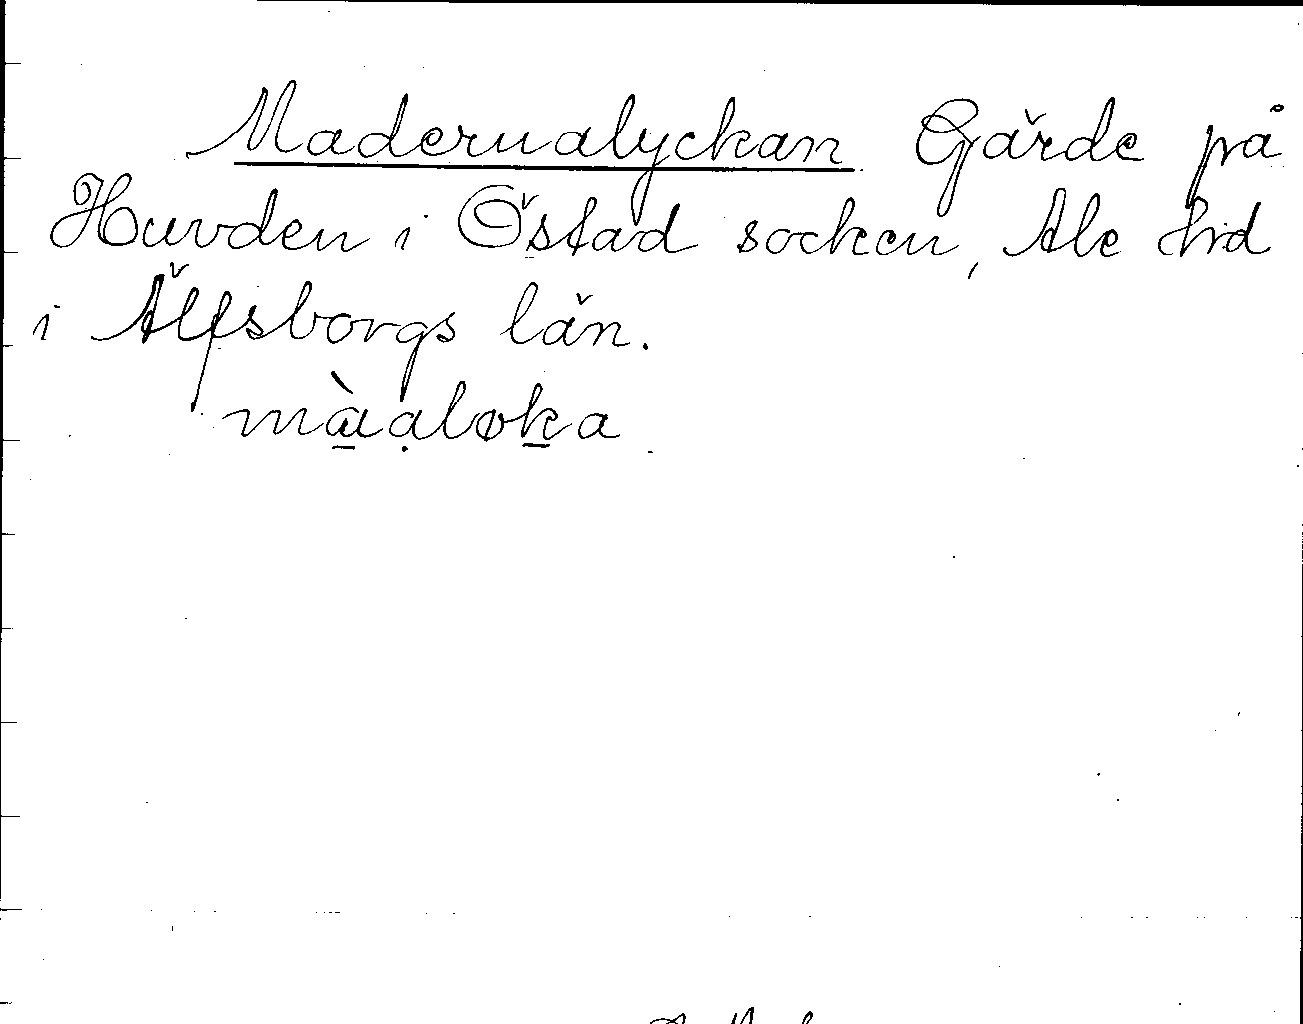 Madernalyckan Gärde på
Huvden i Östad socken, Ale hd
i Älfsborgs län.
màaløka